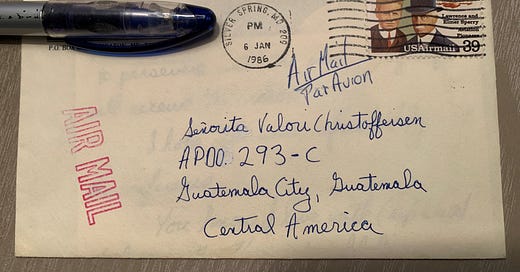 P.O. BOX
SILVER SPRING, MD 209
PM
6 JAN
1986
Lawrence and
Elmer Sperry
Aviation
Pioneers
USAirmail 39
Air Mail
Par Avion
AIR MAIL
Señorita Valori Christoffeisen
APDO. 293-C
Guatemala City, Guatemala
Central America